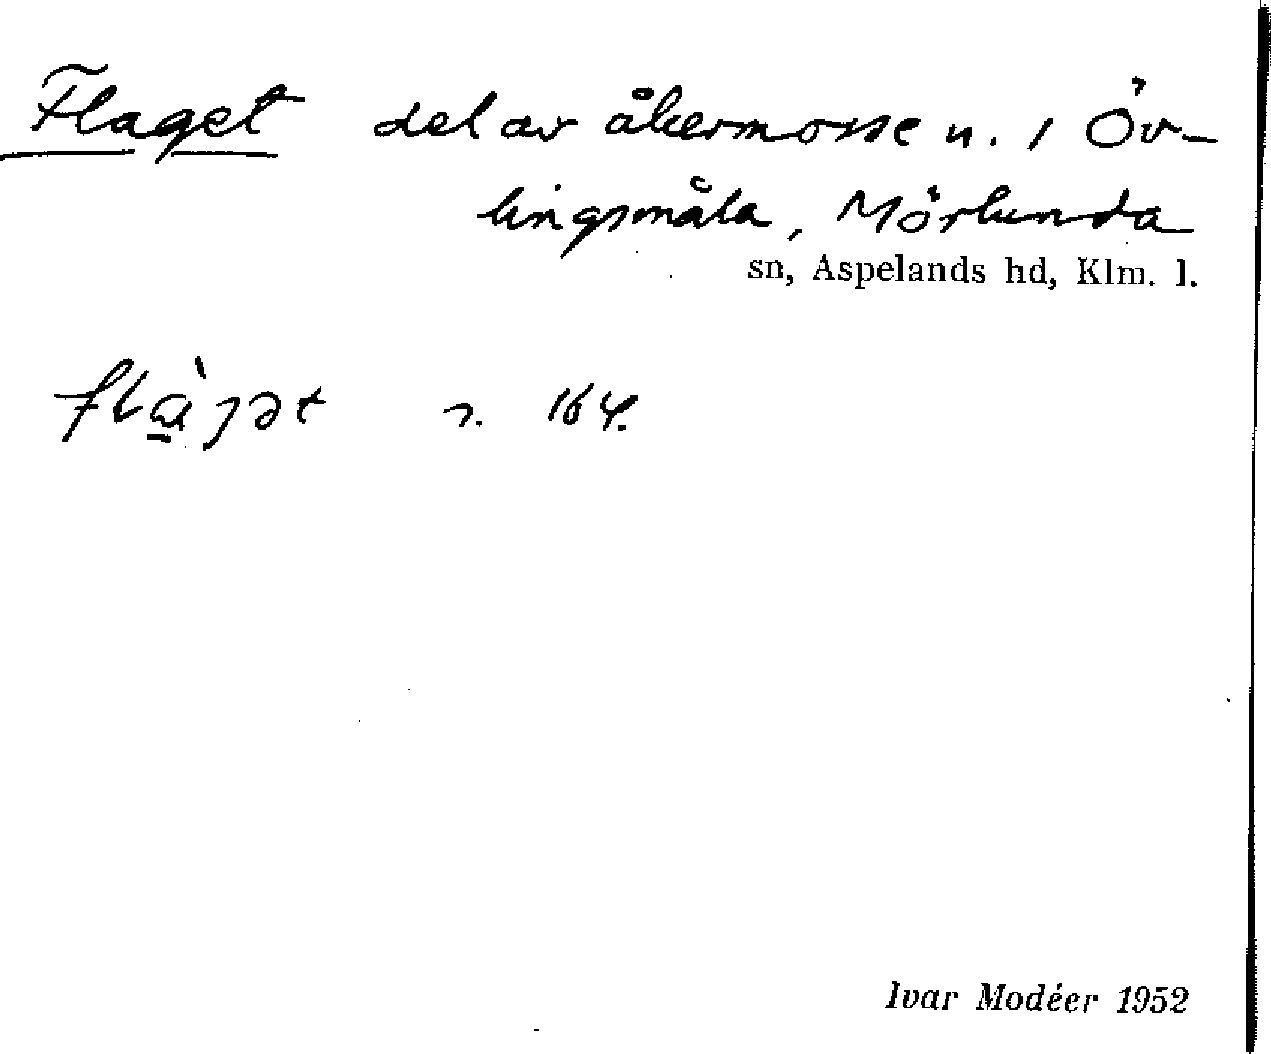 Flaget del av åkermosse u. 1 Öv-
lingsmåla, Mörlunda
sn, Aspelands hd, Klm. l.
164.
Ivar Modéer 1952